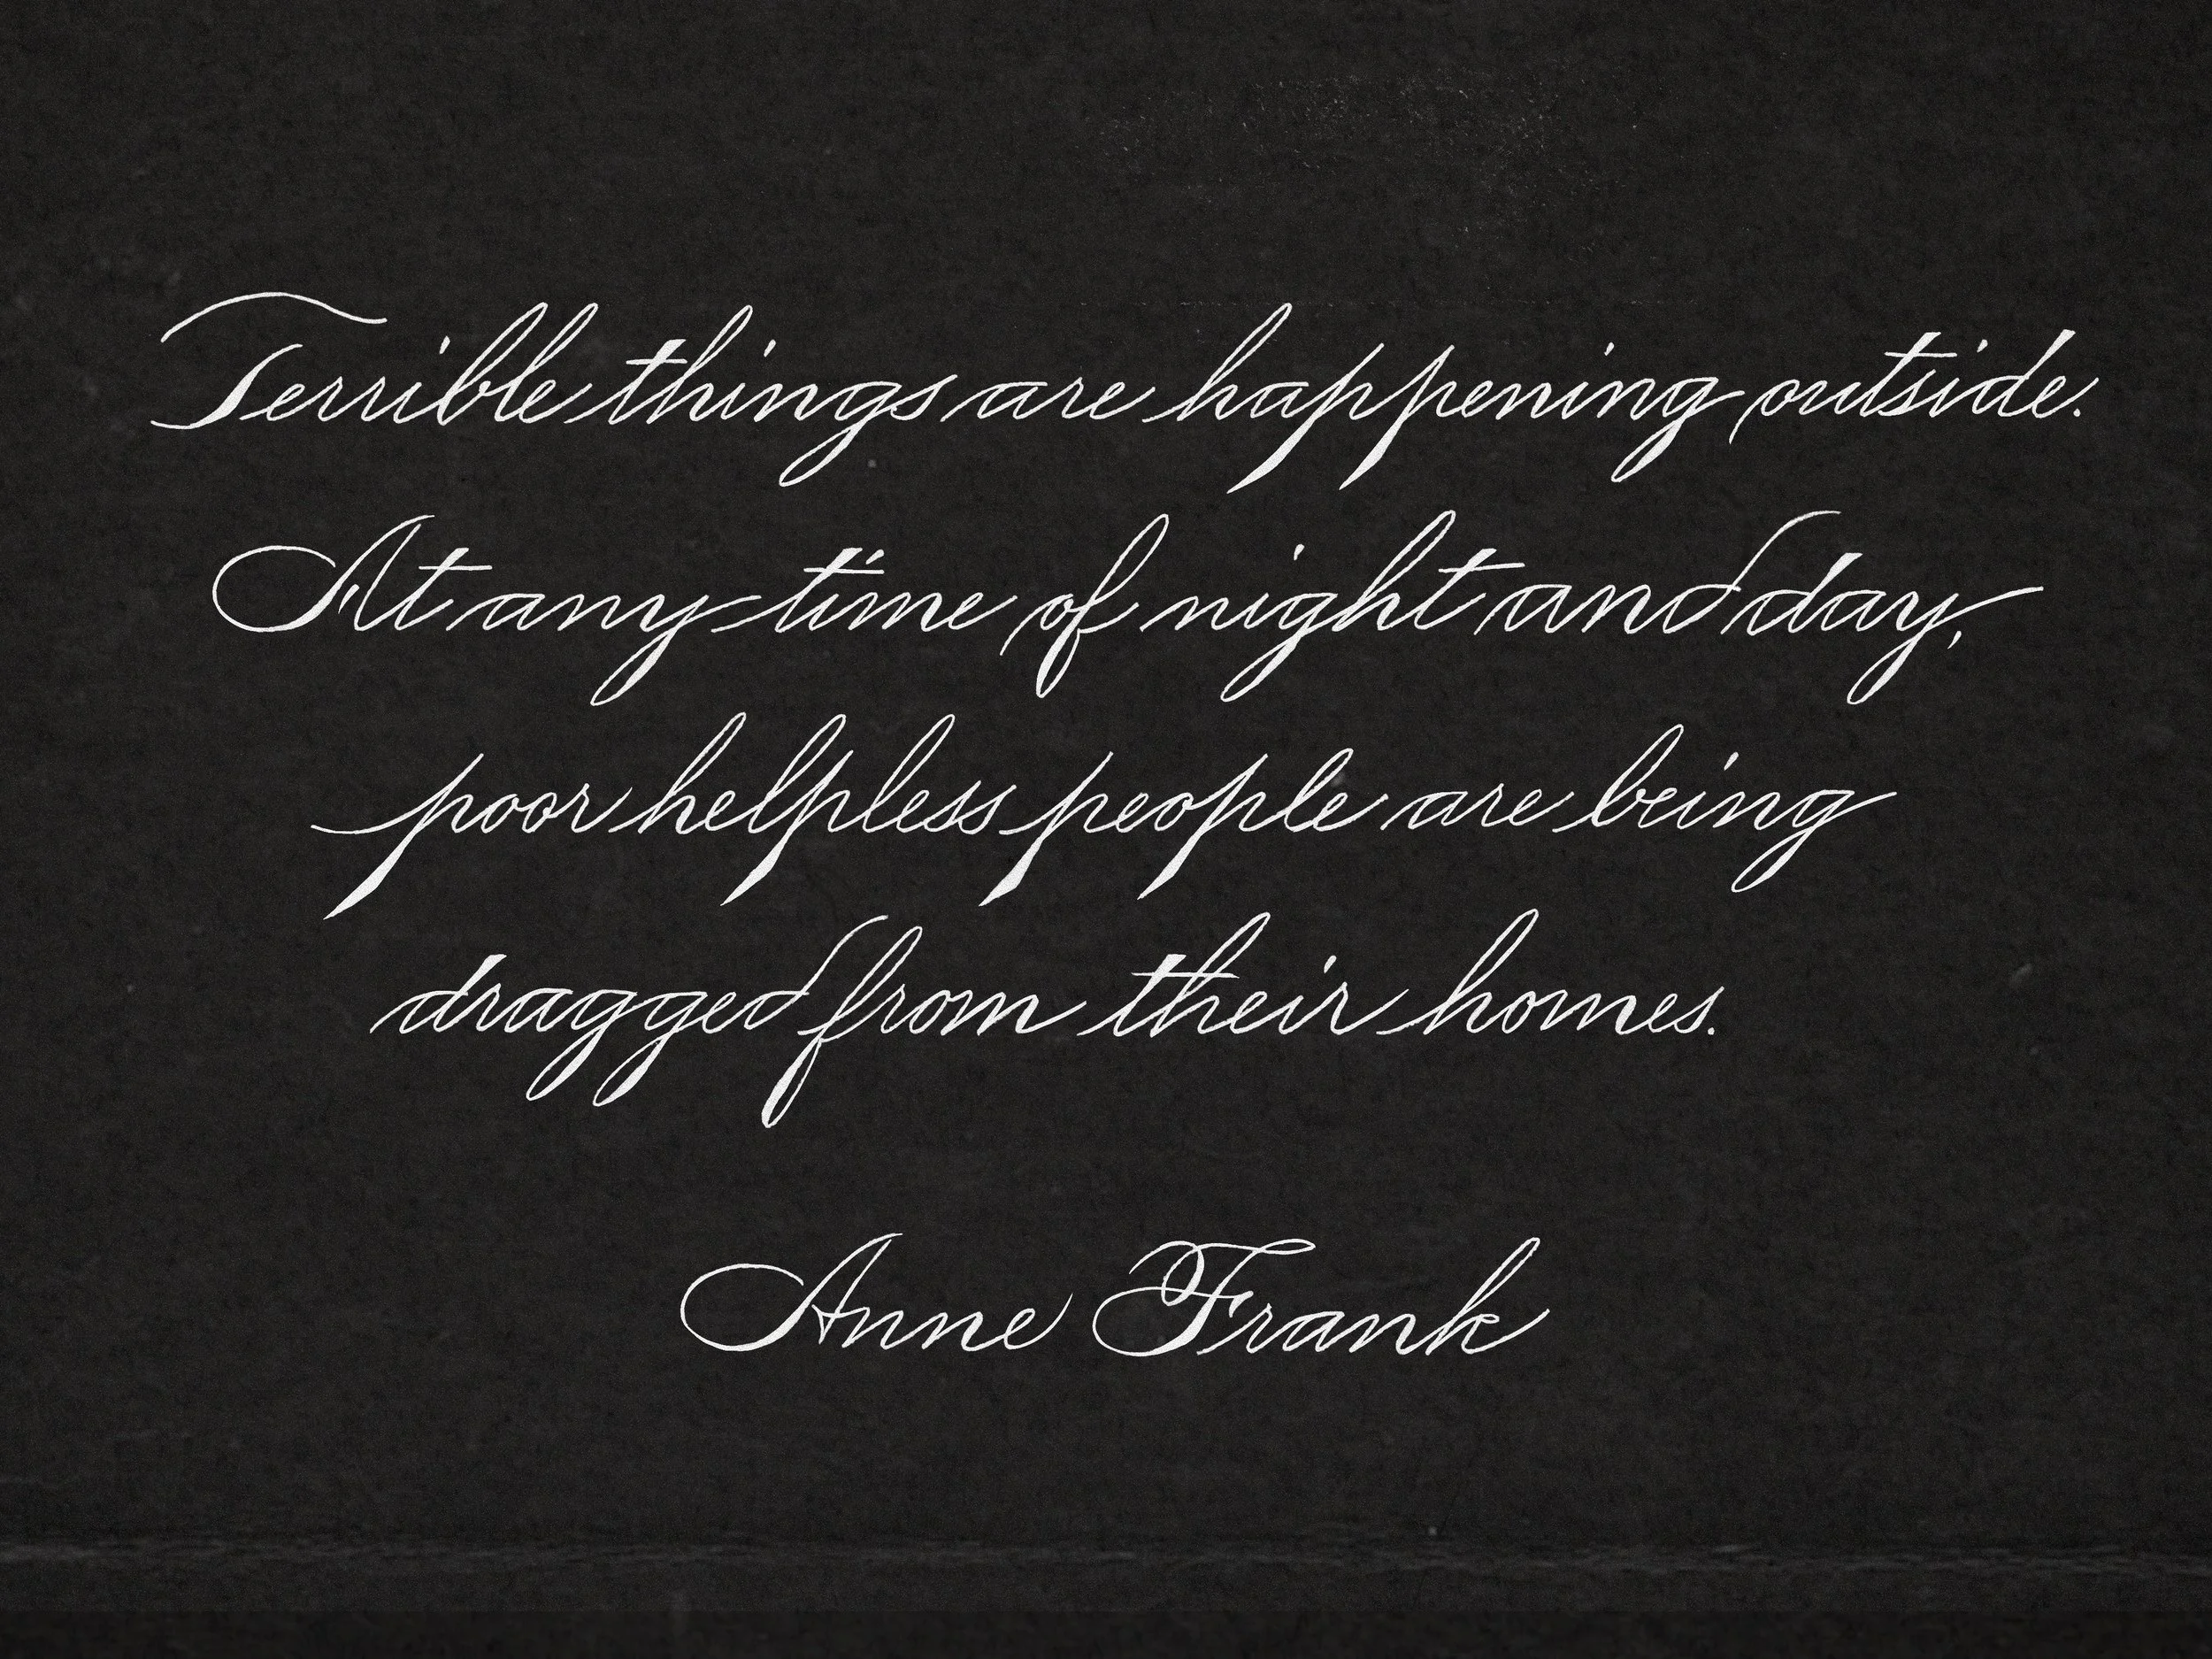 Terrible things are happening outside.
At any time of night and day,
poor helpless people are being
dragged from their homes.
Anne Frank